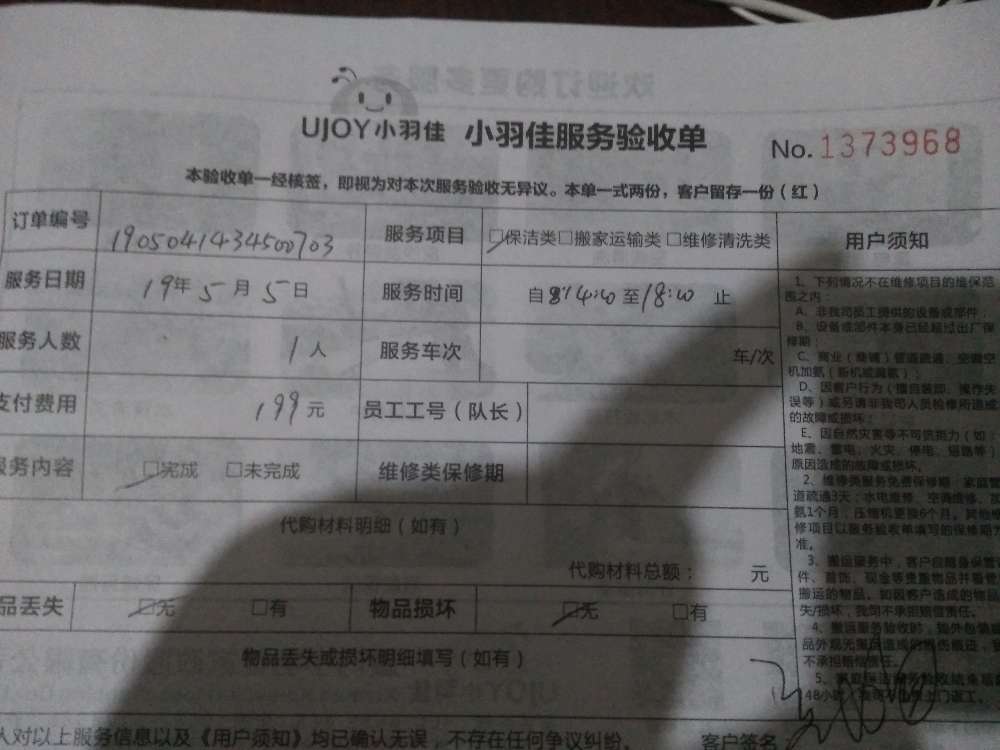 UJOY小羽佳 小羽佳服务验收单 No.1373968
本验收单一经核签，即视为对本次服务验收无异议。本单一式两份，客户留存一份（红）
订单编号 1905041434500703 服务项目 □保洁类□搬家运输类□维修清洗类 用户须知
服务日期 19年5月5日 服务时间 自14:00至18:00止
服务人数 1人 服务车次 车/次
支付费用 199元 员工工号（队长）
服务内容 □完成 □未完成 维修类保修期
代购材料明细（如有）
代购材料总额： 元
品丢失 □无 □有 物品损坏 □无 □有
物品丢失或损坏明细填写（如有）
人对以上服务信息以及《用户须知》均已确认无误，不存在任何争议纠纷。 客户签名：
1、下列情况不在维修项目的维保范
围之内：
A、非我司员工提供的设备或部件；
B、设备或部件本身已经超过出厂保
修期；
C、商业（商铺）管道疏通、空调空
机加氨（新机或漏氨）；
D、因客户行为（擅自装卸、操作失
误等）或另请非我司人员检修所造成
的故障或损坏；
E、因自然灾害等不可抗力（如：
地震、雷电、火灾、停电、短路等）
原因造成的故障或损坏。
2、维修类服务免费保修期：家庭管
道疏通3天；水电维修、空调维修、加
氨1个月，压缩机更换6个月。其他维
修项目以服务验收单填写的保修期为
准。
3、搬运服务中，客户自随身保管
件、首饰、现金等贵重物品并看管
搬运的物品。如因客户造成的物品
失/损坏，我司不承担赔偿责任。
4、搬运服务验收时，如外包装
品外观无
不承担赔偿责任。
5、
48小时